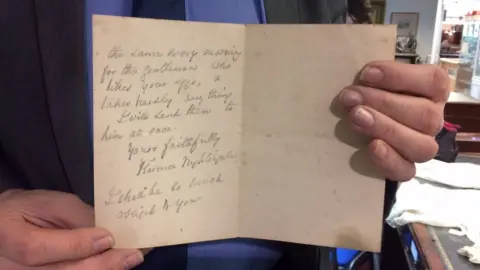 the same every morning
for the gentleman who
likes your eggs, &
takes hardly anything
I will send them to
him at once.
Yours faithfully
Florence Nightingale
I shall be so much
obliged to you